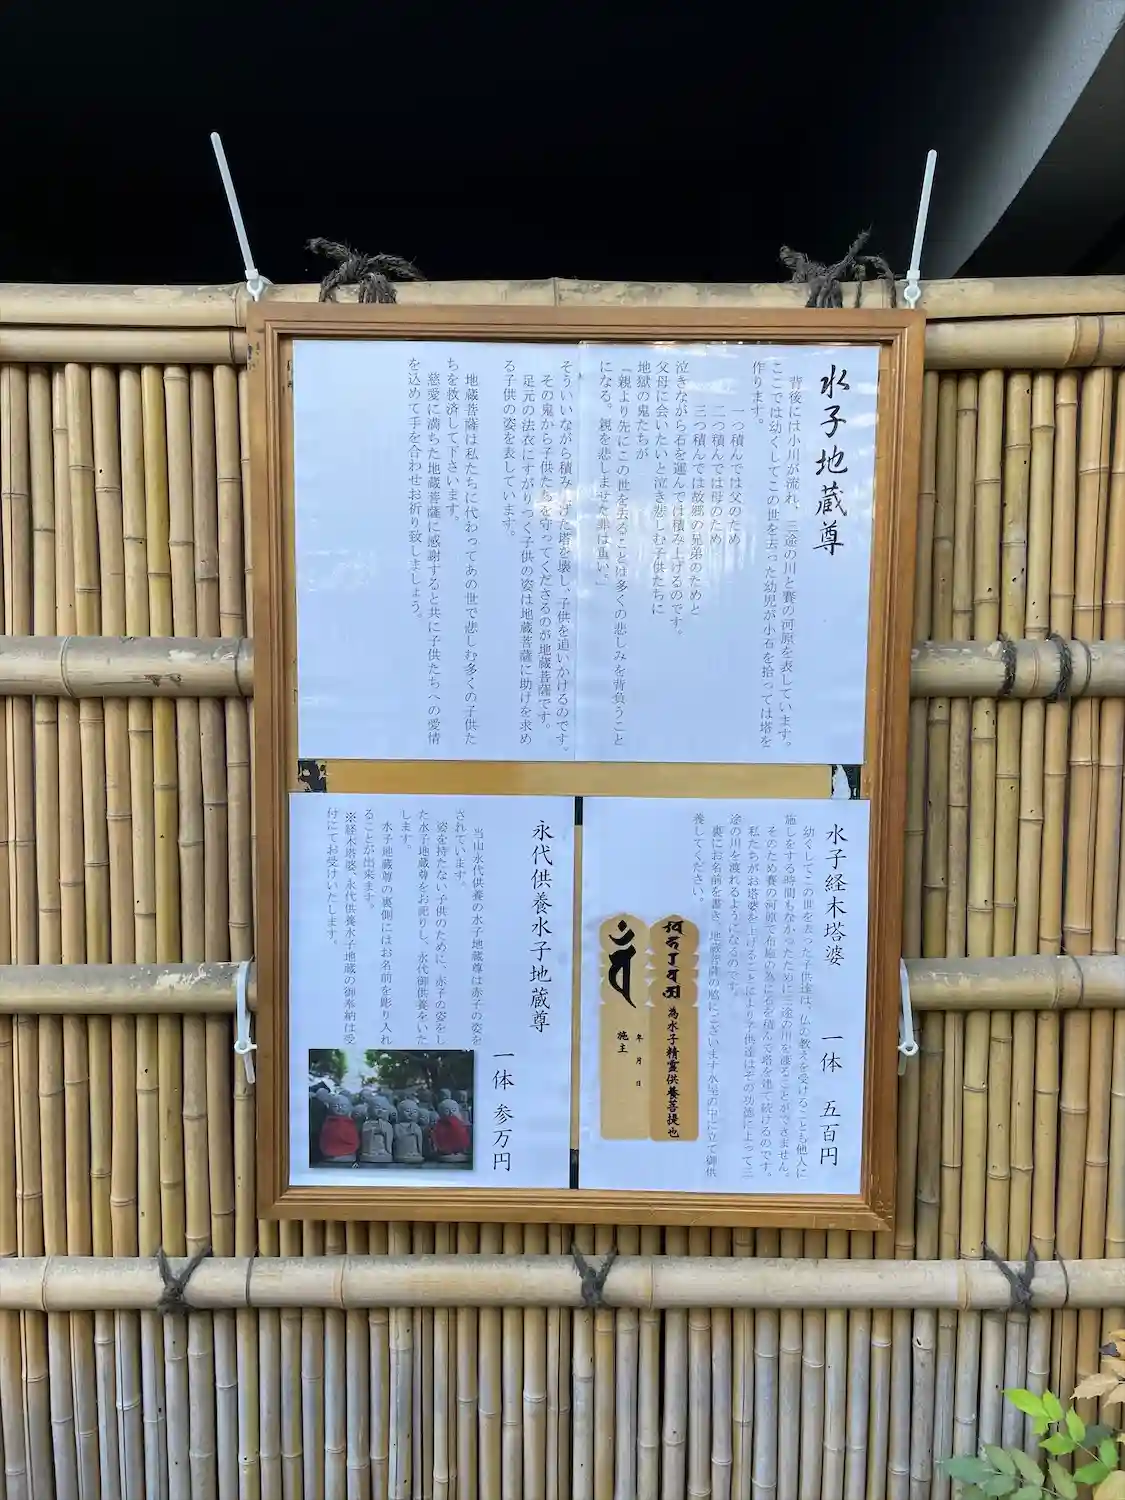 水子地蔵尊
背後には小川が流れ、三途の川と賽の河原を表しています。
ここでは幼くしてこの世を去った幼児が小石を拾っては塔を
作ります。
一つ積んでは父のため
二つ積んでは母のため
三つ積んでは故郷の兄弟のためと
泣きながら石を運んでは積み上げるのです。
父母に会いたいと泣き悲しむ子供たちに
地獄の鬼たちが
「親より先にこの世を去ることは多くの悲しみを背負うこと
になる。親を悲しませた罪は重い。」
そういいながら積み上げた塔を壊し、子供を追いかけるのです。
その鬼から子供たちを守ってくださるのが地蔵菩薩です。
足元の法衣にすがりつく子供の姿は地蔵菩薩に助けを求め
る子供の姿を表しています。
地蔵菩薩は私たちに代わってあの世で悲しむ多くの子供た
ちを救済して下さいます。
慈愛に満ちた地蔵菩薩に感謝すると共に子供たちへの愛情
を込めて手を合わせお祈り致しましょう。
水子経木塔婆 一体 五百円
幼くしてこの世を去った子供達は、仏の教えを受けることも他人に
施しをする時間もなかったために三途の川を渡ることができません。
そのため賽の河原で布施の為に石を積んで塔を建て続けるのです。
私たちがお塔婆を上げることにより子供達はその功徳によって三
途の川を渡れるようになるのです。
裏にお名前を書き、地蔵菩薩の脇にございます水屋の中に立て御供
養してください。
為水子精霊供養菩提也
年 月 日
施主
永代供養水子地蔵尊
一体 参万円
当山永代供養の水子地蔵尊は赤子の姿を
されています。
姿を持たない子供のために、赤子の姿をし
た水子地蔵尊をお祀りし、永代御供養をいた
します。
水子地蔵尊の裏側にはお名前を彫り入れ
ることが出来ます。
※経木塔婆、永代供養水子地蔵の御奉納は受
付にてお受けいたします。